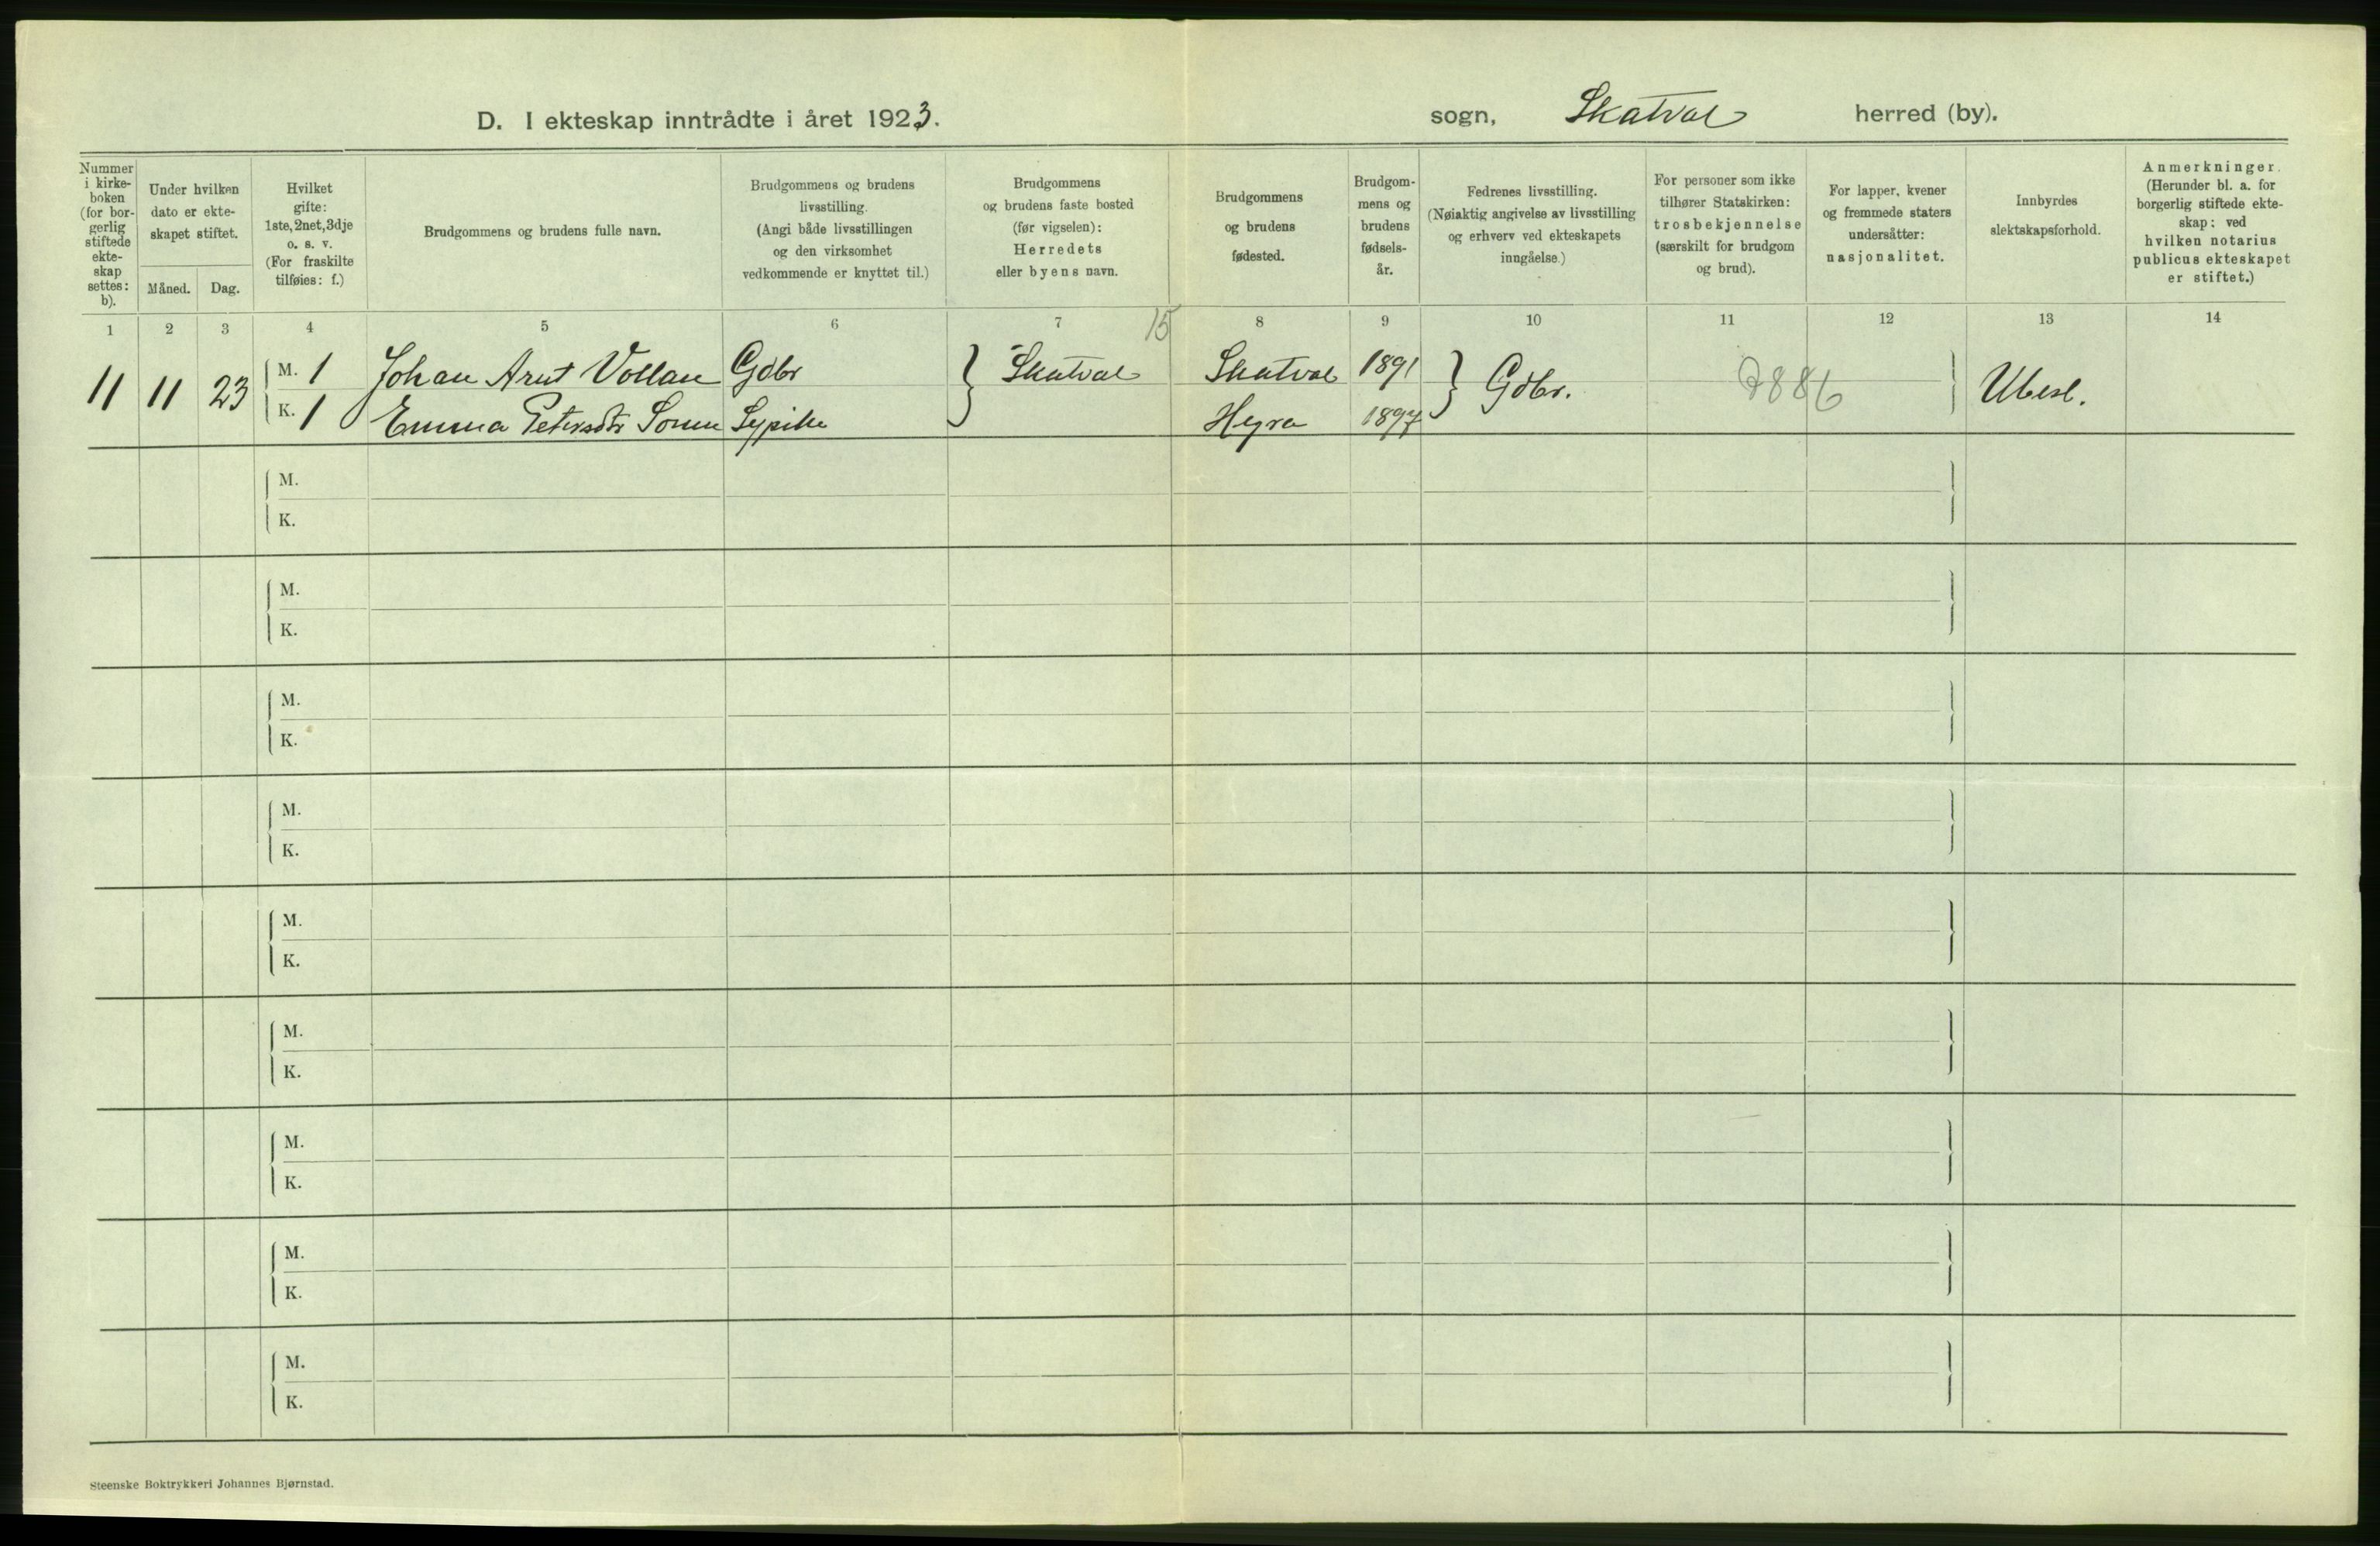 D. I ekteskap inntrådte i året 1923. sogn, Skatval herred (by).
Nummer i kirke- boken (for bor- gerlig stiftede ekte- skap settes: b).
Under hvilken dato er ekte- skapet stiftet.
Måned. Dag.
Hvilket gifte: 1ste, 2net, 3dje o. s. v. (For fraskilte tilføies: f.)
Brudgommens og brudens fulle navn.
Brudgommens og brudens livsstilling. (Angi både livsstillingen og den virksomhet vedkommende er knyttet til.)
Brudgommens og brudens faste bosted (før vigselen): Herredets eller byens navn.
Brudgommens og brudens fødested.
Brudgom- mens og brudens fødsels- år.
Fedrenes livsstilling. (Nøiaktig angivelse av livsstilling og erhverv ved ekteskapets inngåelse.)
For personer som ikke tilhører Statskirken: trosbekjennelse (særskilt for brudgom og brud).
For lapper, kvener og fremmede staters undersåtter: nasjonalitet.
Innbyrdes slektskapsforhold.
Anmerkninger. (Herunder bl. a. for borgerlig stiftede ekte- skap: ved hvilken notarius publicus ekteskapet er stiftet.)
1 2 3 4 5 6 7 15 8 9 10 11 12 13 14
11 11 23 M. 1 Johan Arnt Vollan Gdbr Skatval Skatval 1891 Gdbr. 2886 Ubesl.
K. 1 Emma Petersdtr Sypike Hegra 1897
M.
K.
M.
K.
M.
K.
M.
K.
M.
K.
M.
K.
M.
K.
M.
K.
M.
K.
Steenske Boktrykkeri Johannes Bjørnstad.